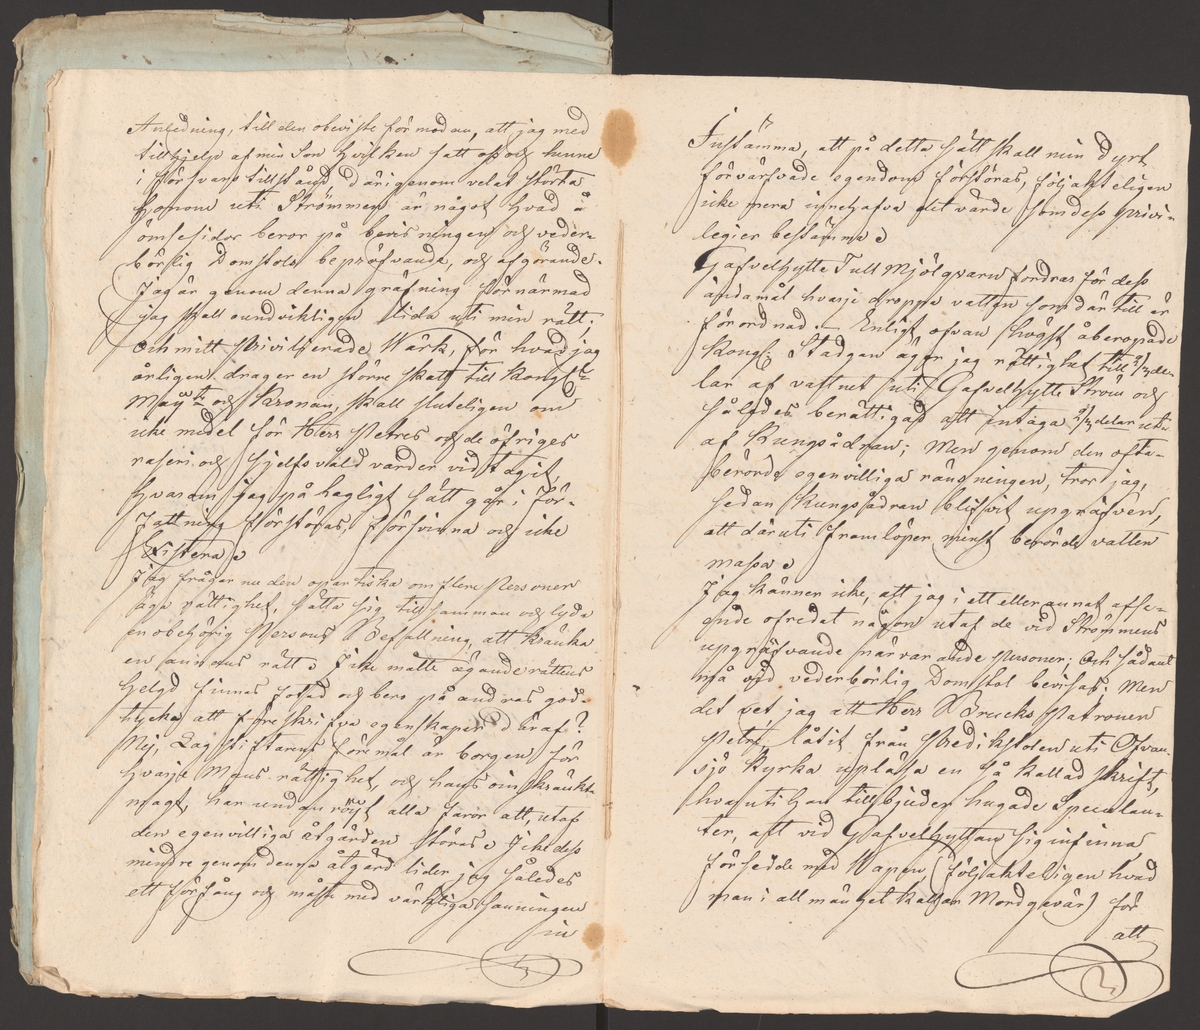 Anledning, till den obeviste förmodan, att jag med
tillhjelp af min Son hvilken satt oss och hinne
i försvars tillstånd därigenom velat störta
honom uti Strömmen är något hvad å
ömse sidor beror på bevisningen och veder-
börlig Domstols bepröfvande, och afgörande.
Jag är genom denna gräfning förnärmad
jag skall oundvikligen lida uti min rätt;
Och mitt priviligerade Wärk, för hvad jag
årligen drager en större skatt till Kongl
Maÿt och Kronan, skall sluteligen om
icke medel för Herr Petres och de öfriges
raseri och sjelfsvåld varder vid tagit,
hvarom jag på lagligt sätt går i för-
fattning förstöras, försvinna och icke
Existera.
Jag frågar nu den opartiska om flere Personer
äga rättighet, sätta sig till samman och lyda
en obehörig Persons Befallning, att kränka
en annans rätt? Icke måtte äganderättens
helgd finnas fotad och bero på andras god-
tycke att föreskrifva egenskaper däraf?
Nej, Lagstiftarens föremål är borgen för
hvarje Mans rättighet, och hans inskränkte
magt, har undanröjt alla faror att, utaf
den egenvilliga åtgärden störas. Icke dess
mindre genom denna åtgärd lider jag således
ett förfång och måste med värkliga sanningen
in
Instämma, att på detta sätt skall min dyrt
förvärfvade egendom förstöras, följakteligen
icke mera innehafva det värde som dess privi-
legier bestämma.
Gafvelhytte Tull Mjölqvarn fordras för dess
ändamål hvarje droppa vatten som där till är
förordnad. Enligt ofvan högst åberopade
Kongl. Stadgan äger jag rättighet till 2/3 de-
lar af vattnet uti Gafvelhytte Ström och
således berättigad att intaga 2/3 delar ut-
af Kungsådran; Men genom den ofta-
berörde egenvilliga ränsningen, tror jag,
sedan Kungsådran blifvit upgräfven,
att däruti framlöper minst berörde vatten
massa.
Jag känner icke, att jag i ett eller annat afse-
ende ofredat någon utaf de vid Strömmens
upgräfvande närvarande personer; Och sådant
må vid vederbörlig Domstol bevisas; Men
det vet jag att Herr Brucks Patronen
Petre, låtit från Predikstolen uti Ofvan-
sjö Kyrka upläsa en så kallad skrift,
hvaruti han tillbjuder hugade Speculan-
ter, att vid Gafvelhyttan sig infinna
försedde med Vapen (följakteligen hvad
man i allmänhet kallar Mordgevär) för
att